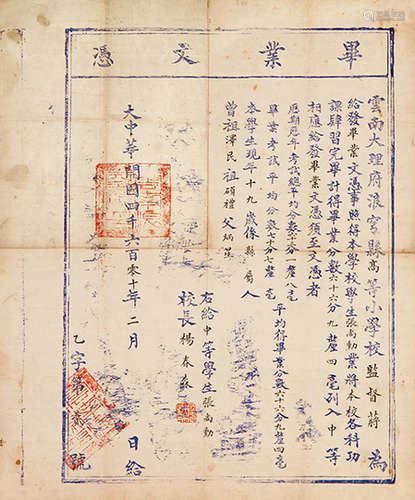 畢業文憑
雲南大理府浪穹縣高等小學校監督蔣 為
給發畢業文憑事照得本學校學生張尚勤業將本校各科功
課肄習完畢計得畢業分數六十六分九釐四毫列入中等
相應給發畢業文憑須至文憑者
平均得畢業分數六十六分九釐四毫
歷期歷年考試總平均分數六十分一釐八毫
畢業考試平均分數七十分七釐 毫
本學生現年十九歲係 縣 屬 人
曾祖澤民 祖碩禮 父炳
右給中等學生張尚勤
校長楊春
大中華開國四千六百零十年二月 日給
乙字第 貳 號